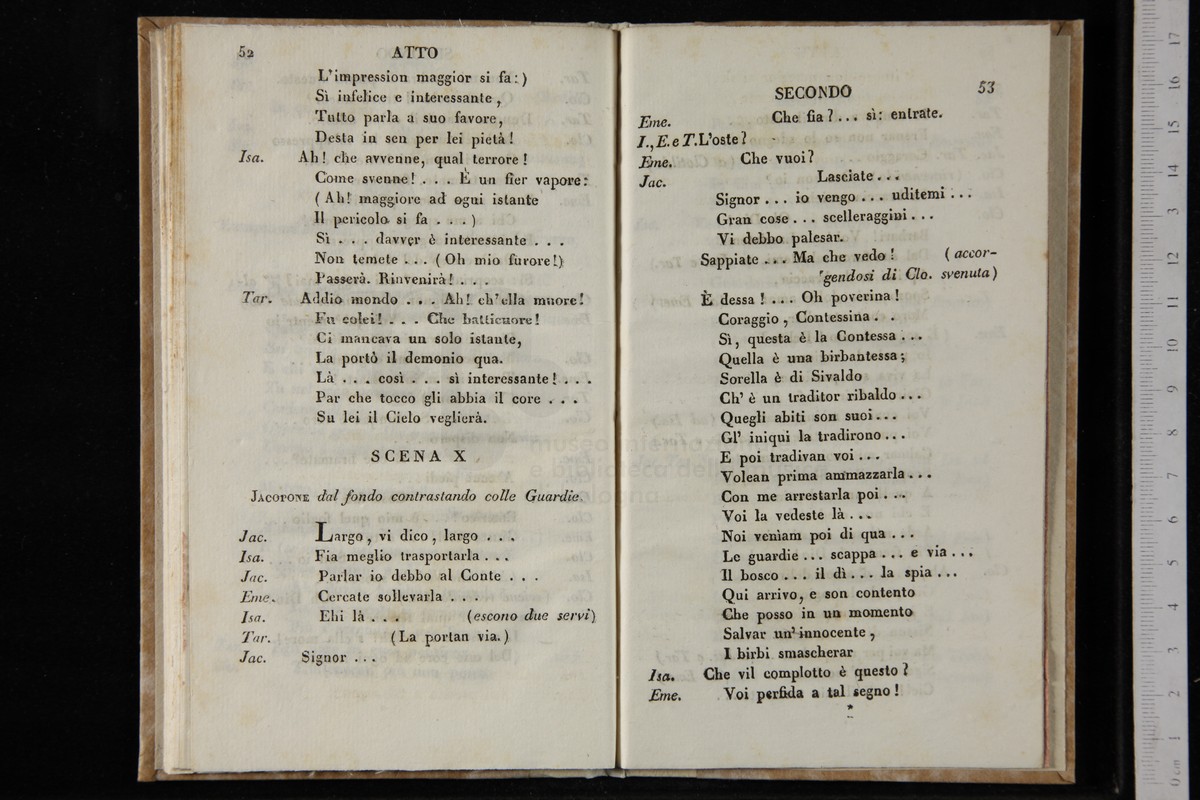 52 ATTO
L'impression maggior si fa:)
Sì infelice e interessante,
Tutto parla a suo favore,
Desta in sen per lei pietà!
Isa. Ah! che avvenne, qual terrore!
Come svenne! . . . È un fier vapore:
(Ah! maggiore ad ogni istante
Il pericolo si fa . . .)
Sì . . . davver è interessante . . .
Non temete . . . (Oh mio furore!)
Passerà. Rinvenirà! . . .
Tar. Addio mondo . . . Ah! ch'ella muore!
Fu colei! . . . Che batticuore!
Ci mancava un solo istante,
La portò il demonio qua.
Là . . . così . . . sì interessante! . . .
Par che tocco gli abbia il core . . .
Su lei il Cielo veglierà.
SCENA X
JACOPONE dal fondo contrastando colle Guardie.
Jac. Largo, vi dico, largo . . .
Isa. Fia meglio trasportarla . . .
Jac. Parlar io debbo al Conte . . .
Eme. Cercate sollevarla . . .
Isa. Ehi là . . . (escono due servi)
Tar. (La portan via.)
Jac. Signor . . .
SECONDO 53
Eme. Che fia? . . . sì: entrate.
I., E. e T. L'oste?
Eme. Che vuoi?
Jac. Lasciate . . .
Signor . . . io vengo . . . uditemi . . .
Gran cose . . . scelleraggini . . .
Vi debbo palesar.
Sappiate . . . Ma che vedo! (accor-
gendosi di Clo. svenuta)
È dessa! . . . Oh poverina!
Coraggio, Contessina . .
Sì, questa è la Contessa . . .
Quella è una birbantessa;
Sorella è di Sivaldo
Ch' è un traditor ribaldo . . .
Quegli abiti son suoi . . .
Gl' iniqui la tradirono . . .
E poi tradivan voi . . .
Volean prima ammazzarla . . .
Con me arrestarla poi . . .
Voi la vedeste là . . .
Noi veniam poi di qua . . .
Le guardie . . . scappa . . . e via . . .
Il bosco . . . il dì . . . la spia . . .
Qui arrivo, e son contento
Che posso in un momento
Salvar un' innocente,
I birbi smascherar
Isa. Che vil complotto è questo?
Eme. Voi perfida a tal segno!
*